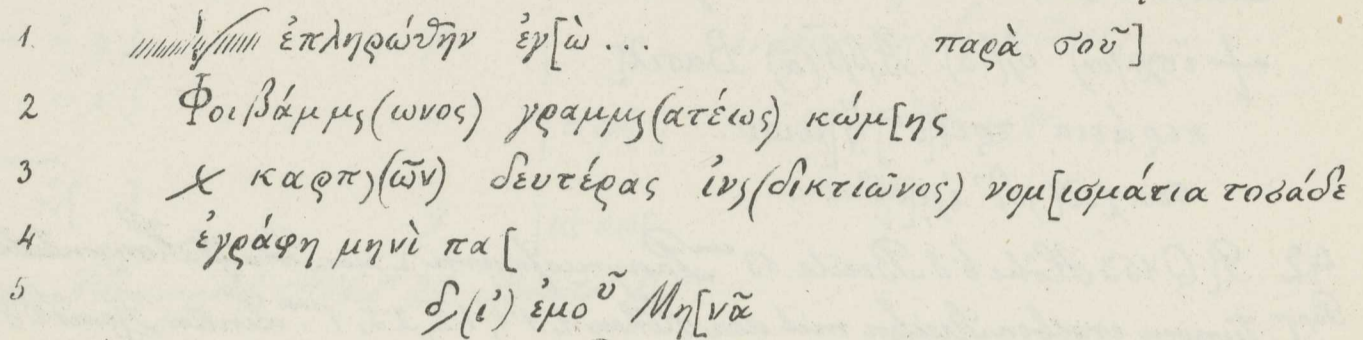 1 ἐπληρώθην ἐγ[ὼ ... παρὰ σοῦ]
2 Φοιβάμμς(ωνος) γραμμς(ατέως) κώμ[ης
3 χ καρπ)(ῶν) δευτέρας ἰνς(δικτιῶνος) νομ[ισμάτια τοσάδε
4 ἐγράφη μηνὶ πα[
5 δ/(ι') ἐμοῦ Μη[νᾶ